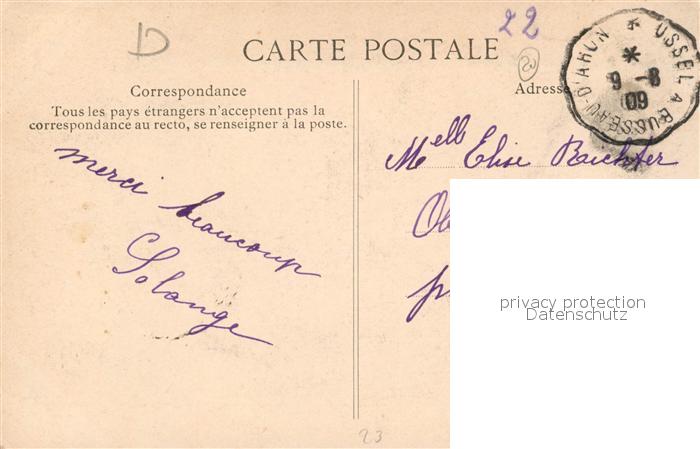 D
22
CARTE POSTALE
20
USSEL A BUSSEAU-D'AHUN
9-8
09
Correspondance
Tous les pays étrangers n'acceptent pas la
correspondance au recto, se renseigner à la poste.
Adresse
merci beaucoup
Solange
Melle Elise Baechter
privacy protection
Datenschutz
23